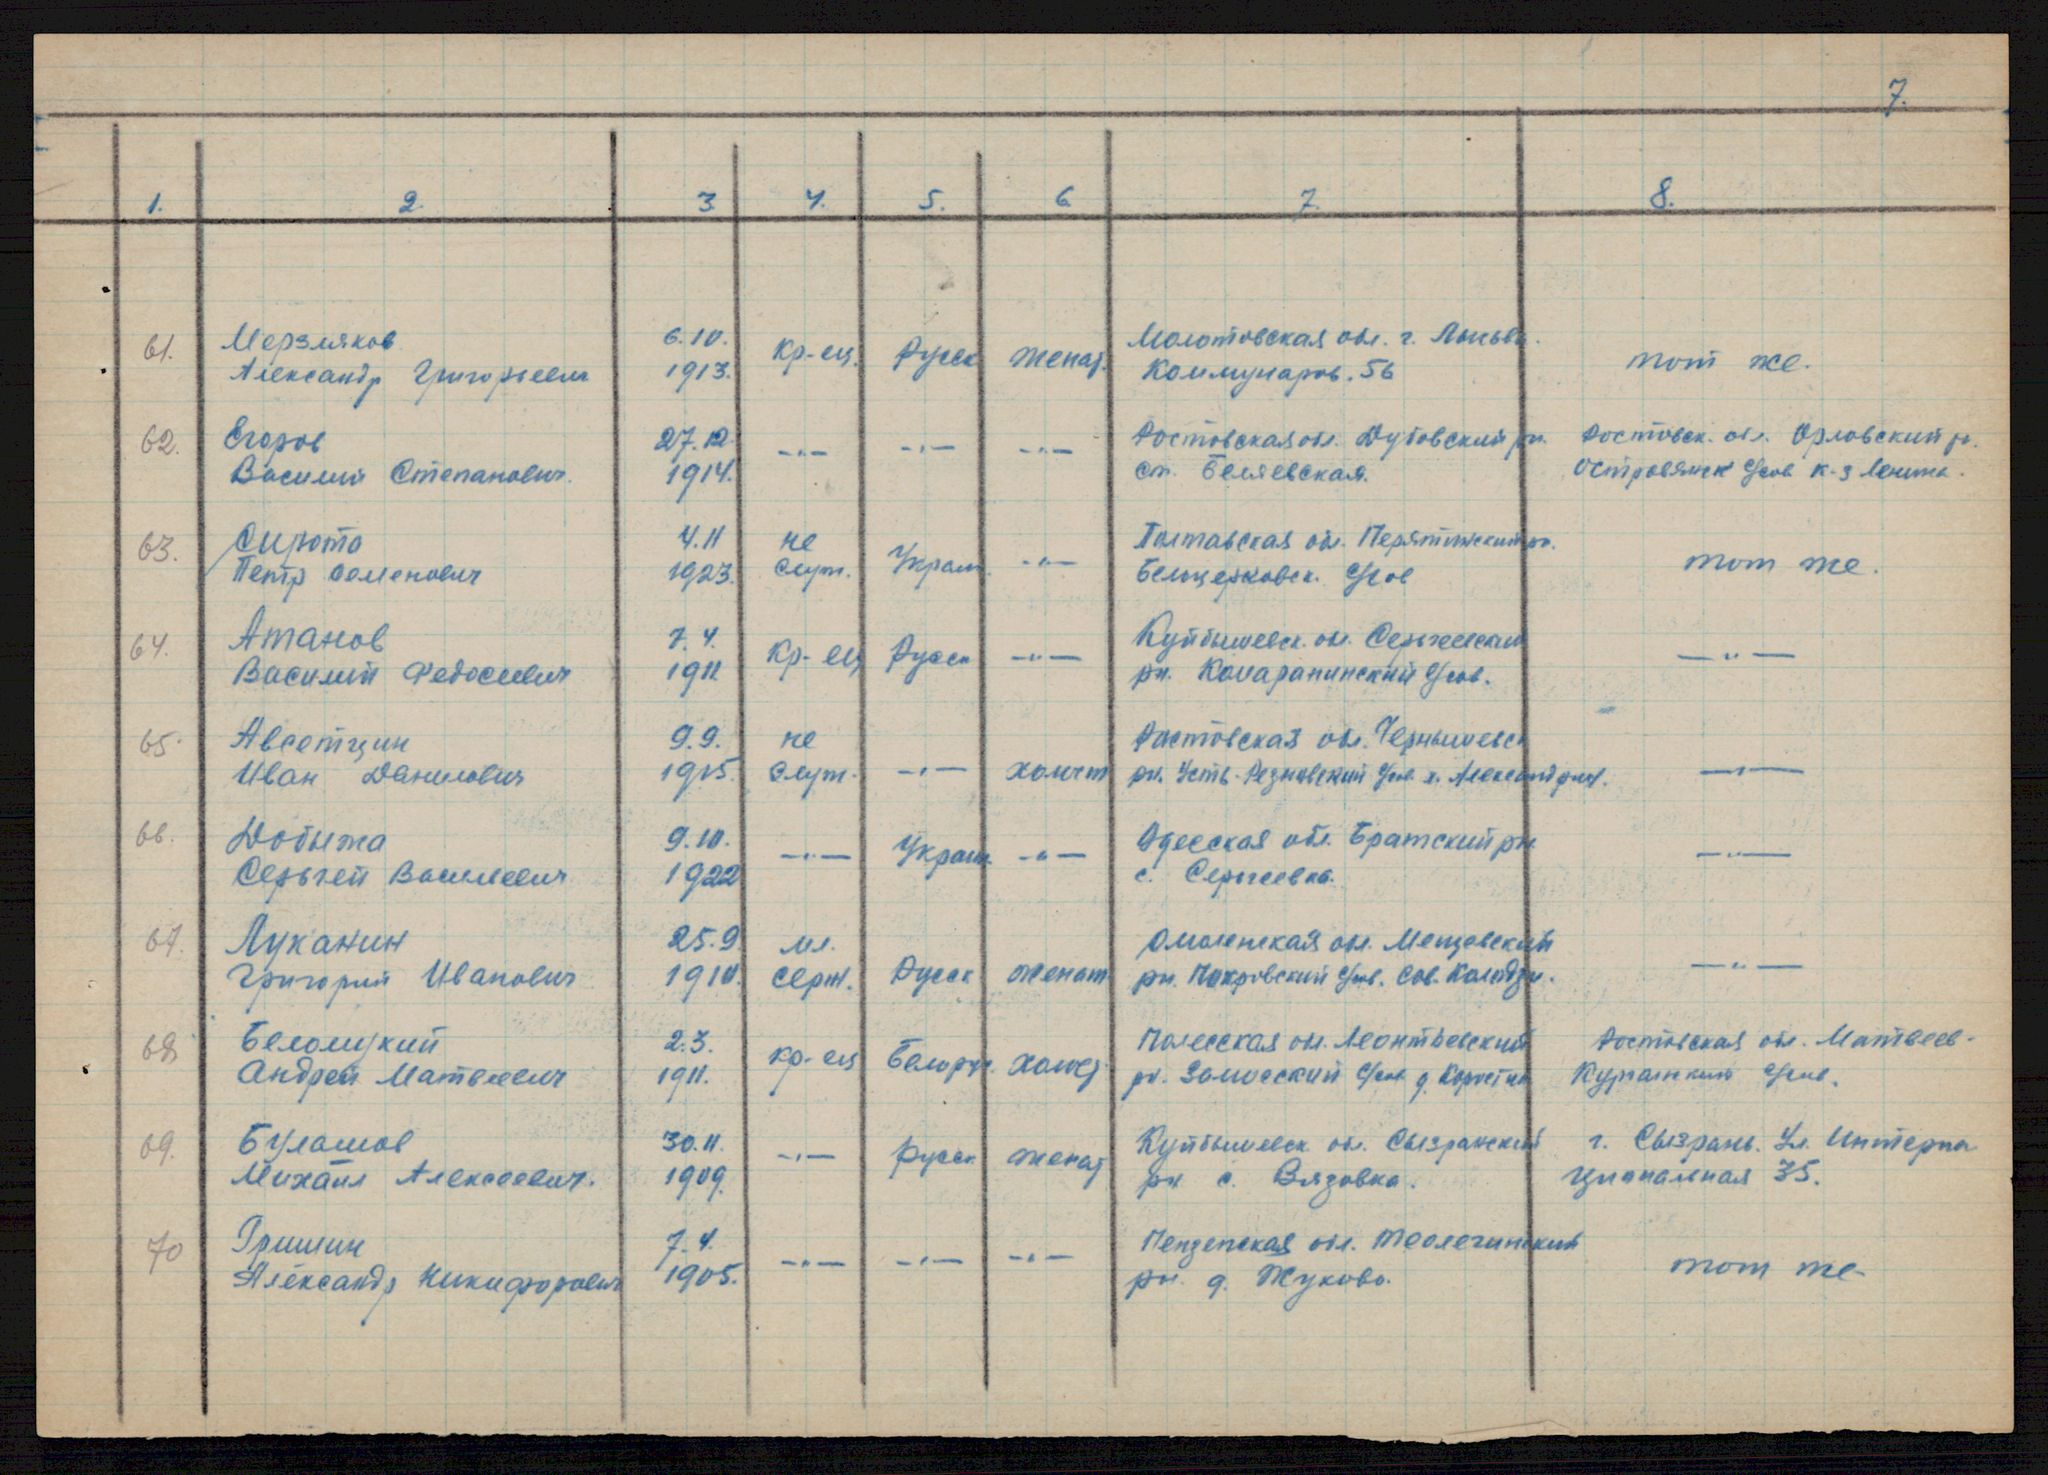 7.
1. 2. 3. 4. 5. 6 7. 8.
61. Мерзляков 6.10. Кр-ец. Русск Женат. Молотовская обл. г. Лысьва. тот же.
Александр Григорьевич 1913. Коммунаров. 56
62. Егоров 27.12 —"— —"— —"— Ростовская обл. Дубовский рн. Ростовск. обл. Орловский р.
Василий Степанович. 1914. ст. Беляевская. Островянск С/сов к-з Ленина.
63. Сирота 4.11 не Украин. —"— Полтавская обл. Перятинский рн. тот же.
Петр Семенович 1923. служ. Белоцерковск. С/сов
64. Атанов 7.4. Кр-ец Русск —"— Куйбышевск. обл. Сергеевский —"—
Василий Федосеевич 1911 рн. С/сов.
65. Авсетцин 9.9. не Ростовская обл. Чернышевск —"—
Иван Данилович 1915. Служ. —"— холост рн. Усть- С/сов. х.
66. Добыжа 9.10. —"— Украин. —"— Одесская обл. Братский рн. —"—
Сергей Васильевич 1922 с. Сергеевка.
67. Луканин 25.9 мл. Смоленская обл. Мещевский —"—
Григорий Иванович 1910. серж. Русск женат рн. Покровский С/сов. Сов.
68 Беломуский 2.3. кр-ец Белорус. Холост Полесская обл. Ростовская обл. Матвеев-
Андрей Матвеевич 1911. рн. С/сов д. Курганский С/сов.
69. Булашов 30.11. —"— Русск Женат Куйбышевск. обл. Сызранский г. Сызрань. Ул. Интерна
Михаил Алексеевич. 1909. рн с. Вязовка. циональная 35.
70 Гришин 7.4. —"— —"— —"— Пензенская обл. тот же
Александр Никифорович 1905. рн. д. Жуково.